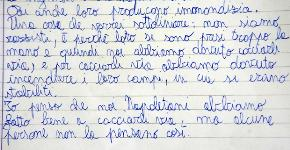 anche loro producono immondizia.
Una cosa che vorrei sottolineare: non siamo
razzisti, è perché loro si sono presi troppo la
mano e quindi noi abbiamo dovuto cacciarli
via, e per cacciarli via abbiamo dovuto
incendiare i loro campi, in cui si erano
stabiliti.
Io penso che noi Napoletani abbiamo
fatto bene a cacciarli via, ma alcune
persone non la pensano così.